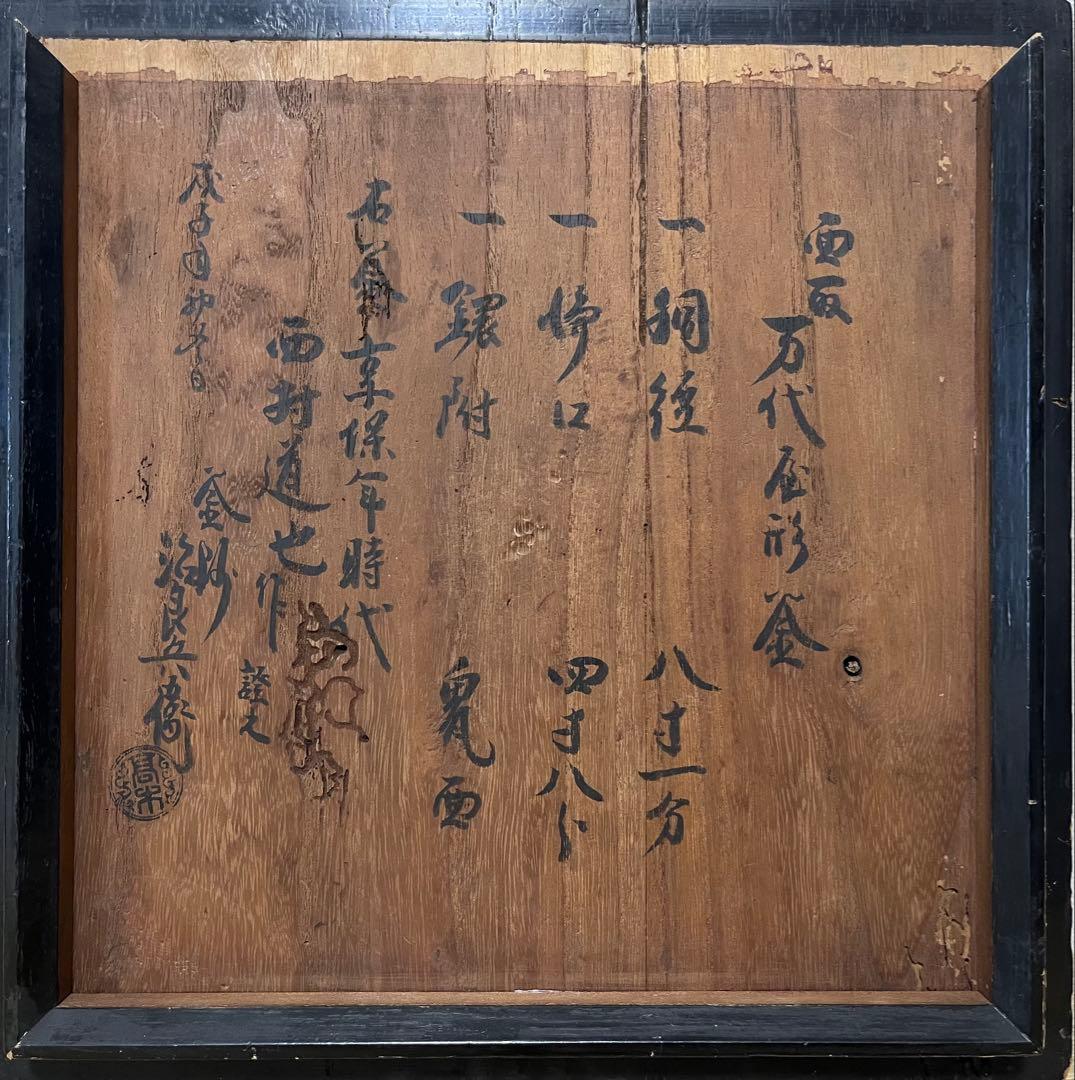 面取
万代屋形釜
一 胴径 八寸一分
一 口 四寸八分
一 鐶附 鬼面
右釜享保年時代
西村道也作
證之
戊子年 日
釜師
治良兵衛
高木